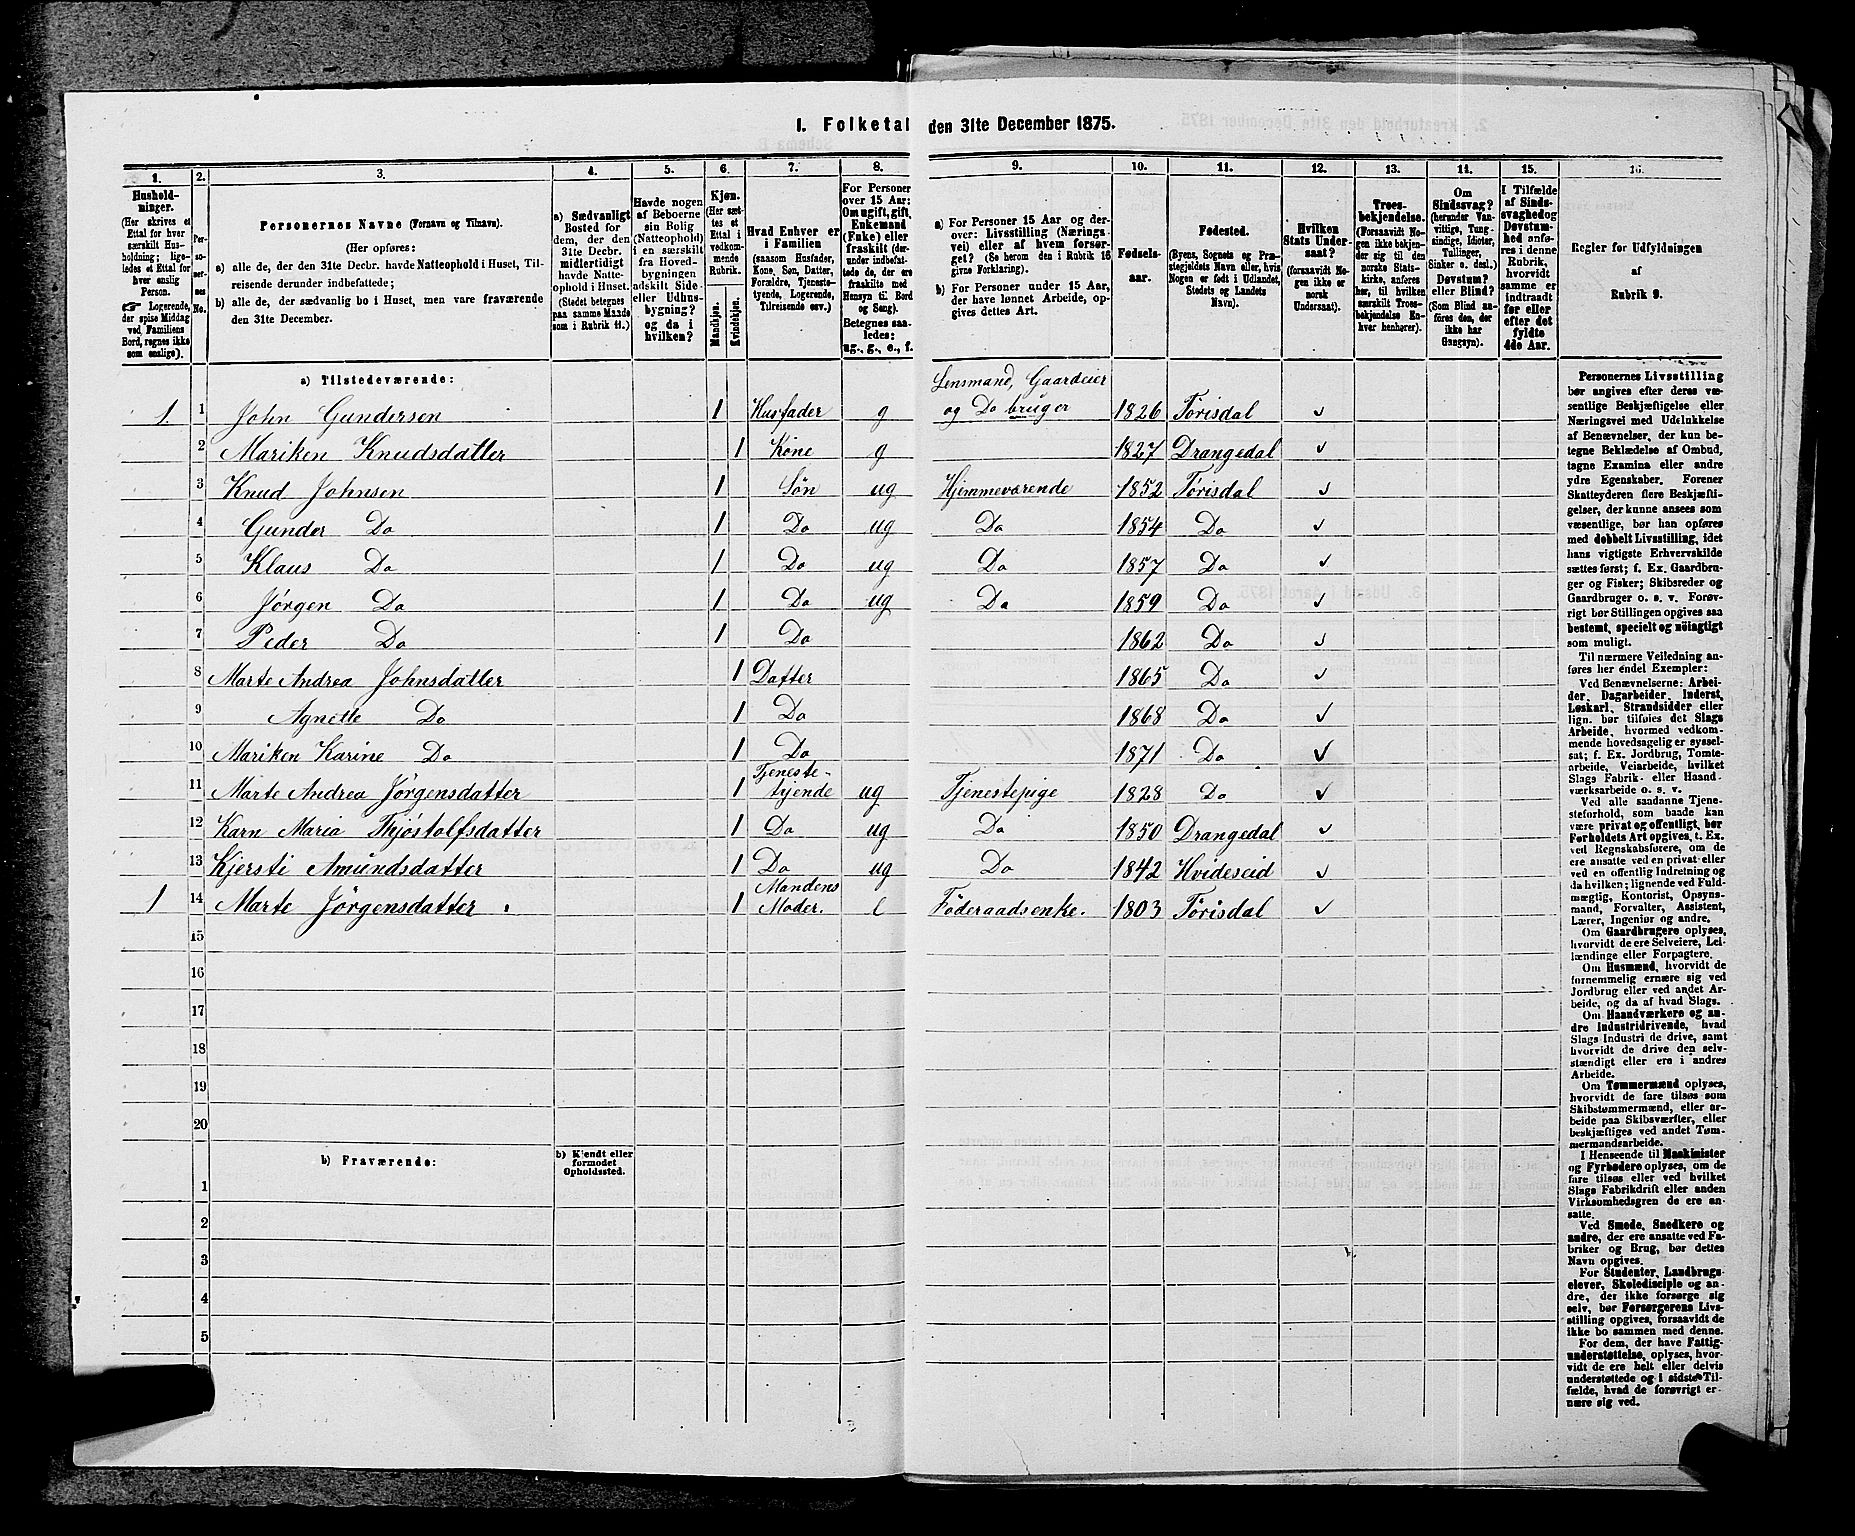 1. Folketal den 31te December 1875.
1. 2. 3. 4. 5. 6. 7. 8. 9. 10. 11. 12. 13. 14. 15. 16.
Hushold-
ninger.
(Her skrives et
Ettal for hver
særskilt Hus-
holdning; lige-
ledes et Ettal for
hver enslig
Person.
☞ Logerende,
der spise Middag
ved Familiens
Bord, regnes ikke
som enslige).
Per-
so-
ner-
nes
No.
Personernes Navne (Fornavn og Tilnavn).
(Her opføres:
a) alle de, der den 31te Decbr. havde Natteophold i Huset, Til-
reisende derunder indbefattede;
b) alle de, der sædvanlig bo i Huset, men vare fraværende
den 31te December.
a) Sædvanligt
Bosted for
dem, der den
31te Decbr.
midlertidigt
havde Natte-
ophold i Huset.
(Stedet betegnes
paa samme Maade
som i Rubrik 11.)
Havde nogen
af Beboerne
sin Bolig
(Natteophold)
i en særskilt
fra Hoved-
bygningen
adskilt Side-
eller Udhus-
bygning?
og da i
hvilken?
Kjøn.
(Her sæt-
tes et
Ettal i
vedkom-
mende
Rubrik.
Mandkjøn.
Kvindekjøn.
Hvad Enhver er
i Familien
(saasom Husfader,
Kone, Søn, Datter,
Forældre, Tjeneste-
tyende, Logerende,
Tilreisende osv.)
For Personer
over 15 Aar:
Om ugift, gift,
Enkemand
(Enke) eller
fraskilt (der-
under indbefat-
tede de, der ere
fraskilte med
Hensyn til Bord
og Seng).
Betegnes saa-
ledes:
ug., g., e., f.
a) For Personer 15 Aar og der-
over: Livsstilling (Nærings-
vei) eller af hvem forsør-
get? (Se herom den i Rubrik 16
givne Forklaring).
b) For Personer under 15 Aar,
der have lønnet Arbeide, op-
gives dettes Art.
Fødsels-
aar.
Fødested.
(Byens, Sognets og Præ-
stegjeldets Navn eller, hvis
Nogen er født i Udlandet,
Stedets og Landets
Navn).
Hvilken
Stats Under-
saat?
(forsaavidt No-
gen ikke er
norsk
Undersaat).
Troes-
bekjendelse.
(Forsaavidt No-
gen ikke bekjen-
der sig til den
norske Stats-
kirke, anføres
her, til hvilken
særskilt Troes-
bekjendelse En-
hver henhører).
Om
Sindssvag?
(herunder Van-
vittige, Tung-
sindige, Idioter,
Tullinger,
Sinker o. desl.)
Døvstum?
eller Blind?
(Som Blind an-
føres den, der
ikke har
Gangsyn).
I Tilfælde
af Sinds-
svaghed og
Døvstum-
hed anfø-
res i denne
Rubrik,
hvorvidt
samme er
indtraadt
før eller
efter det
fyldte
4de Aar.
Regler for Udfyldningen
af
Rubrik 9.
a) Tilstedeværende:
Lensmand, Gaardeier
1. 1 John Gundersen 1 Husfader g og Do bruger 1826 Tørisdal ✓
2 Mariken Knudsdatter 1 Kone g 1827 Drangedal ✓
3 Knud Johnsen 1 Søn ug Hjemmeværende 1852 Tørisdal ✓
4 Gunder Do 1 Do ug Do 1854 Do ✓
5 Klaus Do 1 Do ug Do 1857 Do ✓
6 Jørgen Do 1 Do ug Do 1859 Do ✓
7 Peder Do 1 Do 1862 Do ✓
8 Marte Andrea Johnsdatter 1 Datter 1865 Do ✓
9 Agnette Do 1 Do 1868 Do ✓
10 Mariken Karine Do 1 Do 1871 Do ✓
Tjeneste-
11 Marte Andrea Jørgensdatter 1 tyende ug Tjenestepige 1828 Do ✓
12 Karn Maria Thjøstolfsdatter 1 Do ug Do 1850 Drangedal ✓
13 Kjersti Amundsdatter 1 Do ug Do 1842 Hvideseid ✓
Mandens
1 14 Marte Jørgensdatter 1 Moder. e Føderaadsenke. 1803 Tørisdal ✓
15
16
17
18
19
20
b) Fraværende:
b) Kjendt eller
formodet
Opholdssted.
1
2
3
4
5
Personernes Livsstilling
bør angives efter deres væ-
sentlige Beskjæftigelse eller
Næringsvei med Udelukkelse
af Benævnelser, der kun be-
tegne Beklædelse af Ombud,
tagne Examina eller andre
ydre Egenskaber. Forener
Skatteyderen flere Beskjæfti-
gelser, der kunne ansees som
væsentlige, bør han opføres
med dobbelt Livsstilling, idet
hans vigtigste Erhvervskilde
sættes først; f. Ex. Gaardbru-
ger og Fisker; Skibsreder og
Gaardbruger o. s. v. Forøv-
rigt bør Stillingen opgives saa
bestemt, specielt og nöiagtigt
som muligt.
Til nærmere Veiledning an-
føres her endel Exempler:
Ved Benævnelserne: Arbei-
der, Dagarbeider, Inderst,
Løskarl, Strandsidder eller
lign. bør tilføies det Slags
Arbeide, hvormed vedkom-
mende hovedsagelig er syssel-
sat; f. Ex. Jordbrug, Tomte-
arbeide, Veiarbeide, hvilket
Slags Fabrik- eller Haand-
værksarbeide o. s. v.
Ved alle saadanne Tjene-
steforhold, som baade kan
være privat og offentligt, bør
Forholdets Art opgives, f. Ex.
ved Regnskabsførere, om de
ere ansatte ved en privat eller
ved en offentlig Indretning og
da hvilken; lignende ved Fuld-
mægtig, Kontorist, Opsyns-
mand, Forvalter, Assistent,
Lærer, Ingeniør og andre.
Om Gaardbrugere oplyses,
hvorvidt de ere Selveiere, Lei-
lændinge eller Forpagtere.
Om Husmænd, hvorvidt de
fornemmelig ernære sig ved
Jordbrug eller ved andet Ar-
beide, og da af hvad Slags.
Om Haandværkere og an-
dre Industridrivende, hvad
Slags Industri de drive, samt
hvorvidt de drive den selv-
stændigt eller ere i andres
Arbeide.
Om Tømmermænd oplyses,
hvorvidt de fare tilsøs som
Skibstømmermænd, eller ar-
beide paa Skibsværfter, eller
beskjæftiges ved andet Tøm-
mermandsarbeide.
I Henseende til Maskinister
og Fyrbødere oplyses, om de
fare tilsøs eller ved hvilket
Slags Fabrikdrift eller anden
Virksomhedsgren de ere an-
satte.
Ved Smede, Snedkere og
andre, der ere ansatte ved Fa-
briker og Brug, bør dettes
Navn opgives.
For Studenter, Landbrugs-
elever, Skoledisciple og an-
dre, der ikke forsørge sig
selv, bør Forsørgerens Livs-
stilling opgives, forsaavidt de
ikke bo sammen med denne.
For dem, der have Fattig-
understøttelse, oplyses, hvor-
vidt de ere helt eller delvis
understøttede og i sidste Til-
fælde, hvad de forøvrigt er-
nære sig ved.